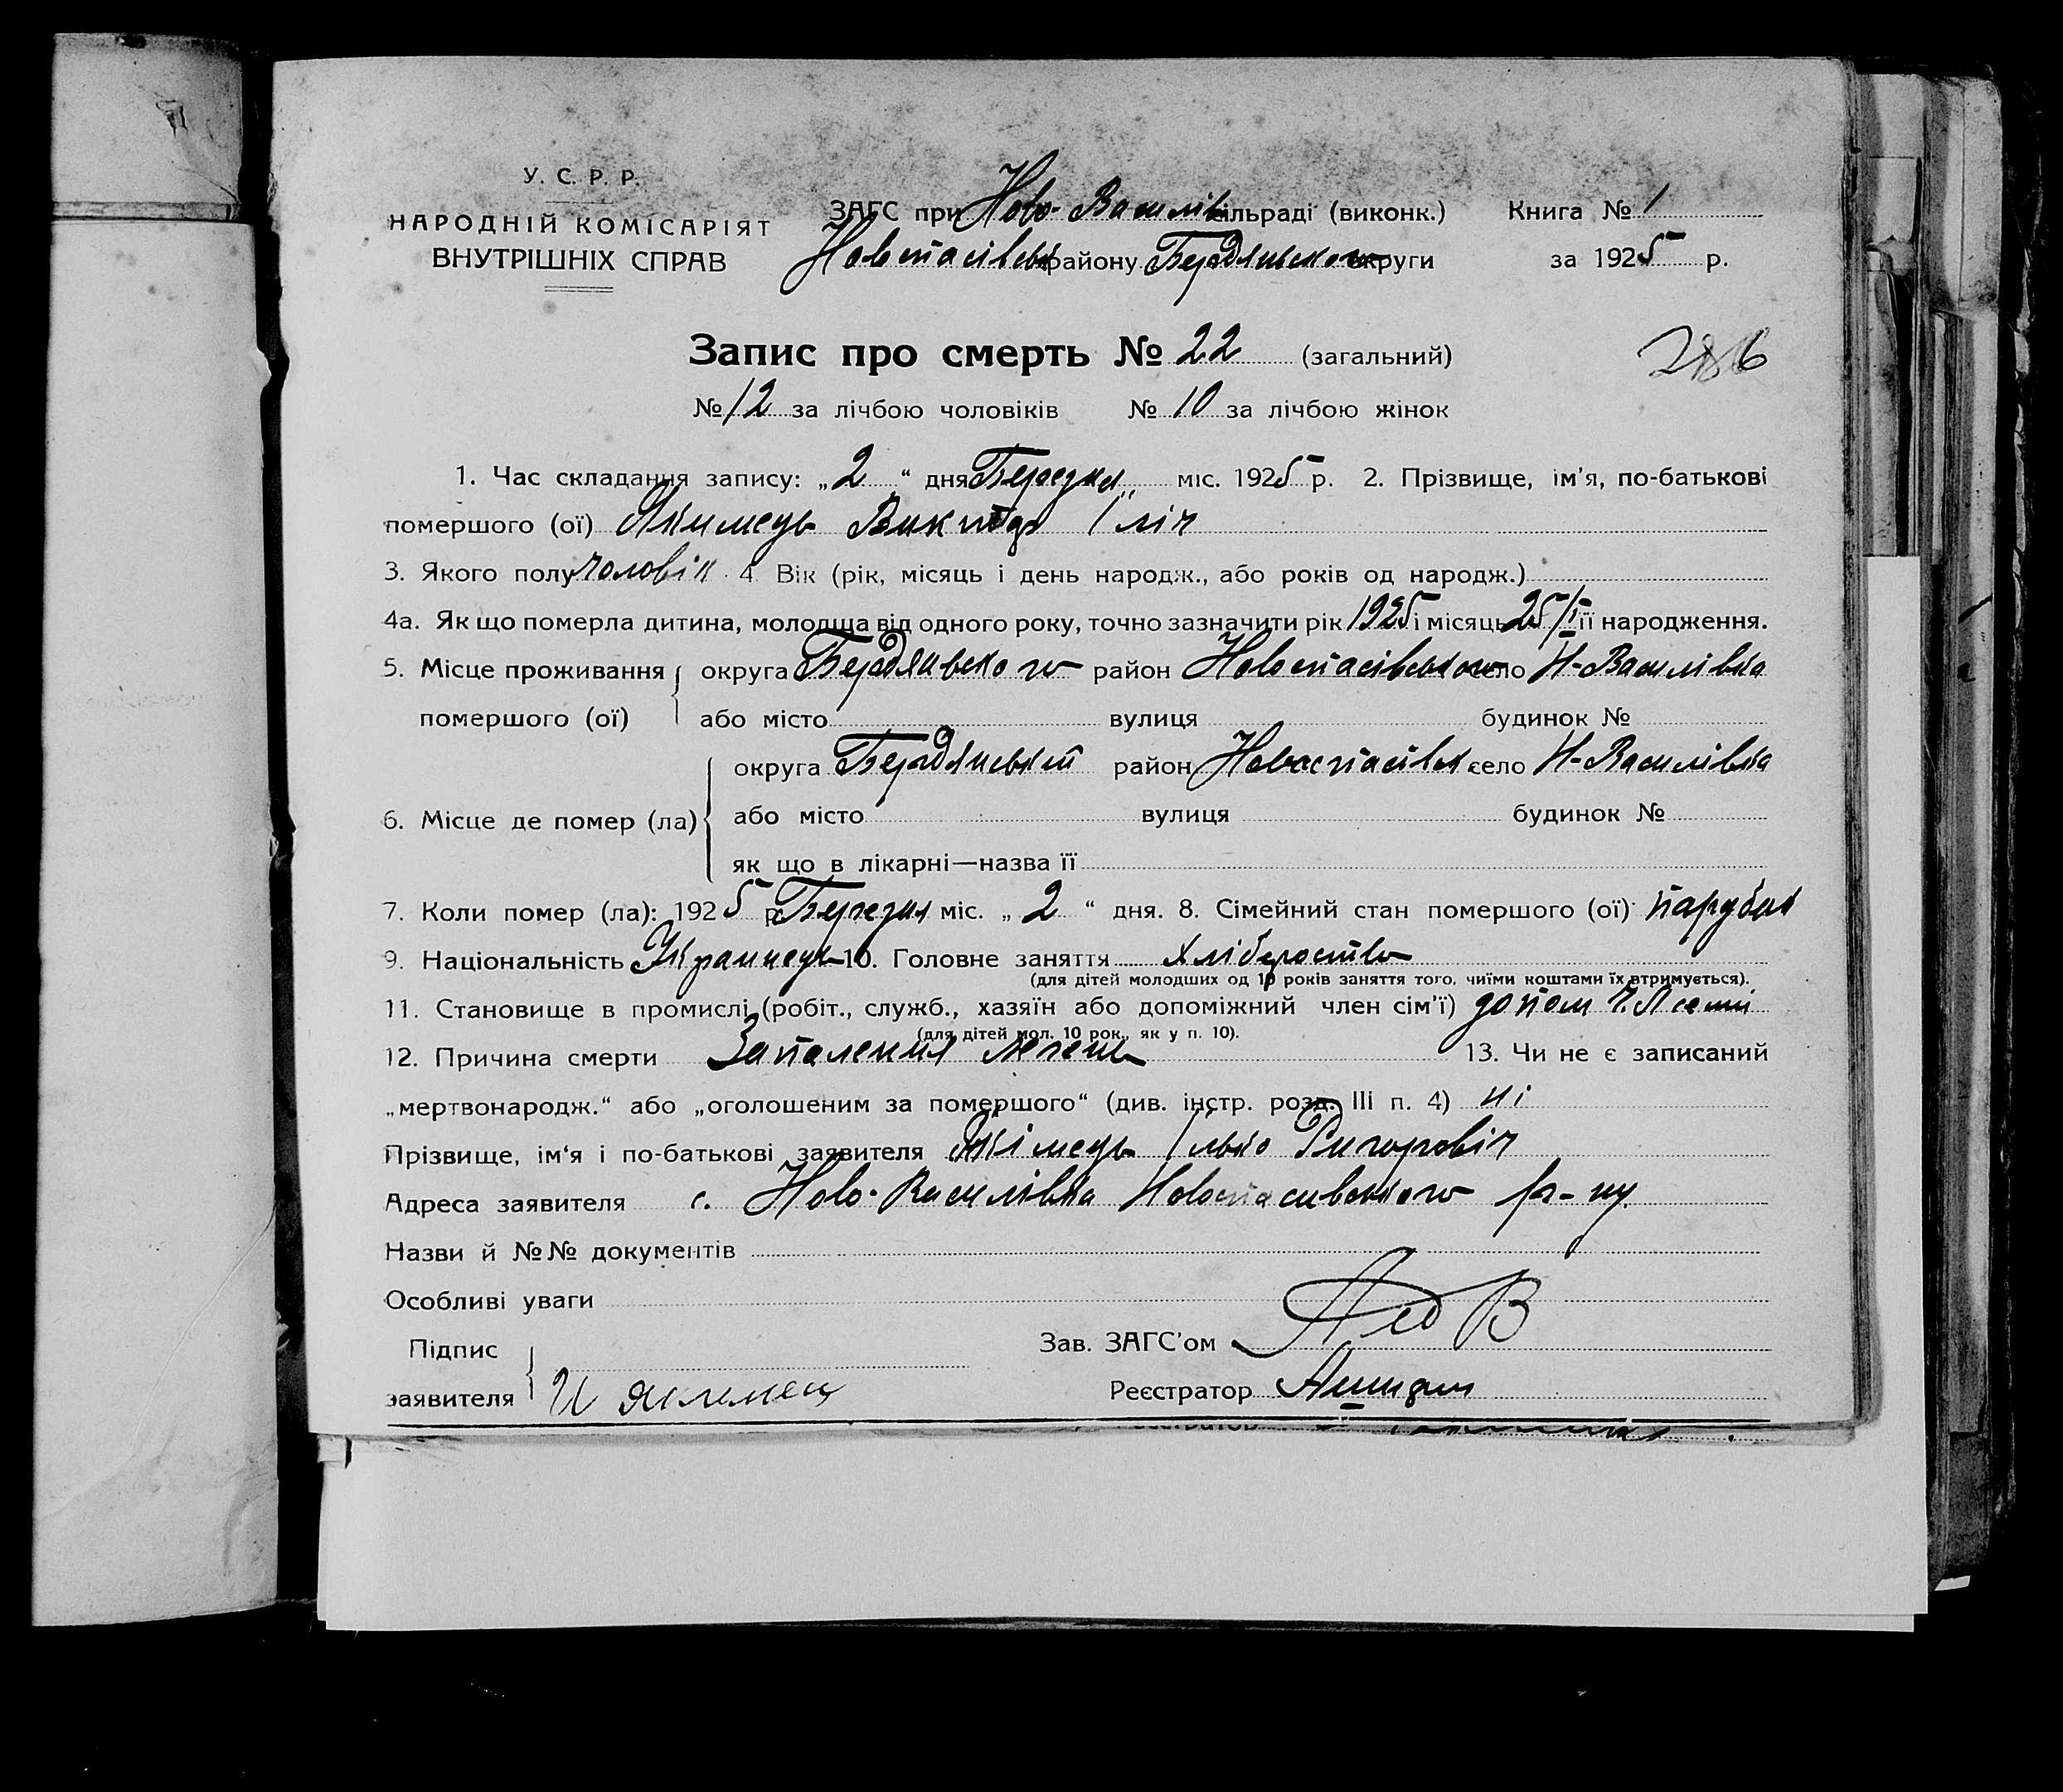 У. С. Р. Р.
НАРОДНІЙ КОМІСАРІЯТ
ВНУТРІШНІХ СПРАВ
ЗАГС при Ново-Василів сільраді (виконк.) Книга № 1
Новоспасівськ району Бердянського округи за 1925 р.
Запис про смерть № 22 (загальний)
№ 12 за лічбою чоловіків № 10 за лічбою жінок
1. Час складання запису: „2“ дня Березня міс. 1925 р. 2. Прізвище, ім'я, по-батькові
помершого (ої) Якимець Виктор Іліч
3. Якого полу чоловік 4. Вік (рік, місяць і день народж., або років од народж.)
4а. Як що померла дитина, молодща від одного року, точно зазначити рік 1925 і місяць 25/I її народження.
5. Місце проживання округа Бердянського район Новоспасівського село Н-Василівка
помершого (ої) або місто вулиця будинок №
округа Бердянський район Новоспасівськ село Н-Василівка
6. Місце де помер (ла) або місто вулиця будинок №
як що в лікарні—назва її
7. Коли помер (ла): 1925 р. Березня міс. „2“ дня. 8. Сімейний стан помершого (ої) парубок
9. Національність Украинець 10. Головне заняття хліборобство
(для дітей молодших од 10 років заняття того, чиїми коштами їх втримується).
11. Становище в промислі (робіт., служб., хазяїн або допоміжний член сім'ї) допом ч. семї
(для дітей мол. 10 рок., як у п. 10).
12. Причина смерти Запалення легень 13. Чи не є записаний
„мертвонародж.“ або „оголошеним за помершого“ (див. інстр. розд. III п. 4) ні
Прізвище, ім'я і по-батькові заявителя Якімець Ілько Григоровіч
Адреса заявителя с. Ново-Василівка Новоспасивського р-ну.
Назви й №№ документів
Особливі уваги
Підпис
Зав. ЗАГС'ом
заявителя И Якимец Реєстратор